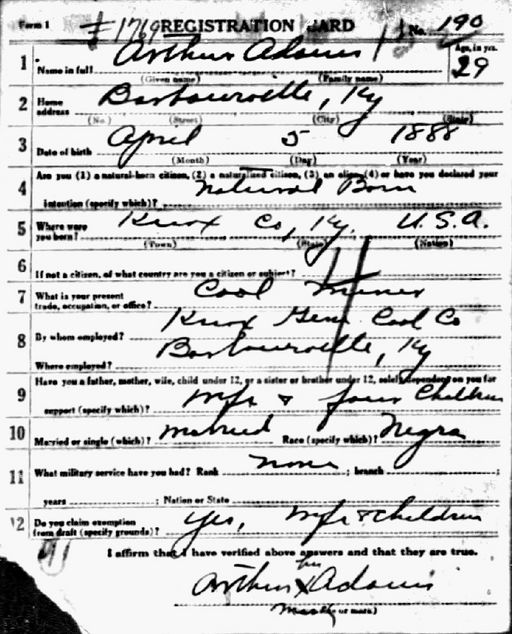 Form 1 # 1769 REGISTRATION CARD No. 190
1 Name in full Arthur Adams Age, in yrs. 29
(Given name) (Family name)
2 Home address Barbourville, Ky
(No.) (Street) (City) (State)
3 Date of birth April 5 1888
(Month) (Day) (Year)
4 Are you (1) a natural-born citizen, (2) a naturalized citizen, (3) an alien, (4) or have you declared your
intention (specify which)? Natural Born
5 Where were you born? Knox Co, Ky. U.S.A.
(Town) (State) (Nation)
6 If not a citizen, of what country are you a citizen or subject?
7 What is your present trade, occupation, or office? Cool Miner
8 By whom employed? Knox Gem Cool Co
Where employed? Barbourville, Ky
9 Have you a father, mother, wife, child under 12, or a sister or brother under 12, solely dependent on you for
support (specify which)? Wife & four Children
10 Married or single (which)? Married Race (specify which)? Negro
11 What military service have you had? Rank None ; branch ;
years ; Nation or State
12 Do you claim exemption from draft (specify grounds)? Yes, Wife & children
I affirm that I have verified above answers and that they are true.
his
Arthur x Adams
Mark or mark)